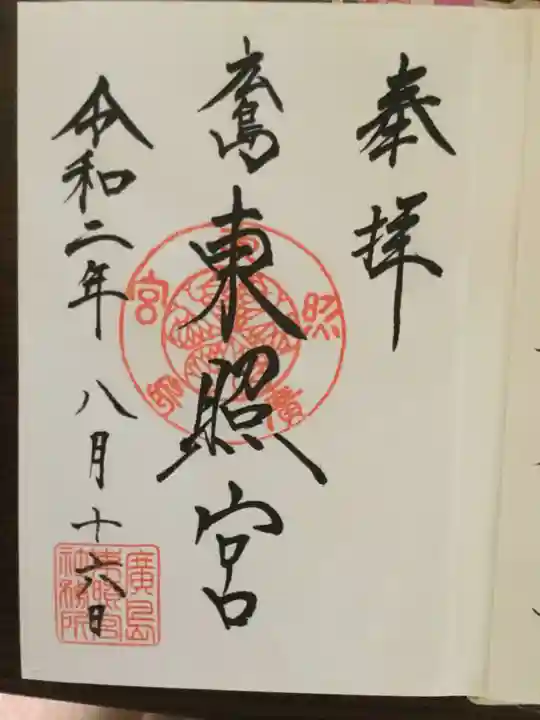 奉拝
廣島東照宮
令和二年八月十六日
廣島
東照宮
社務所